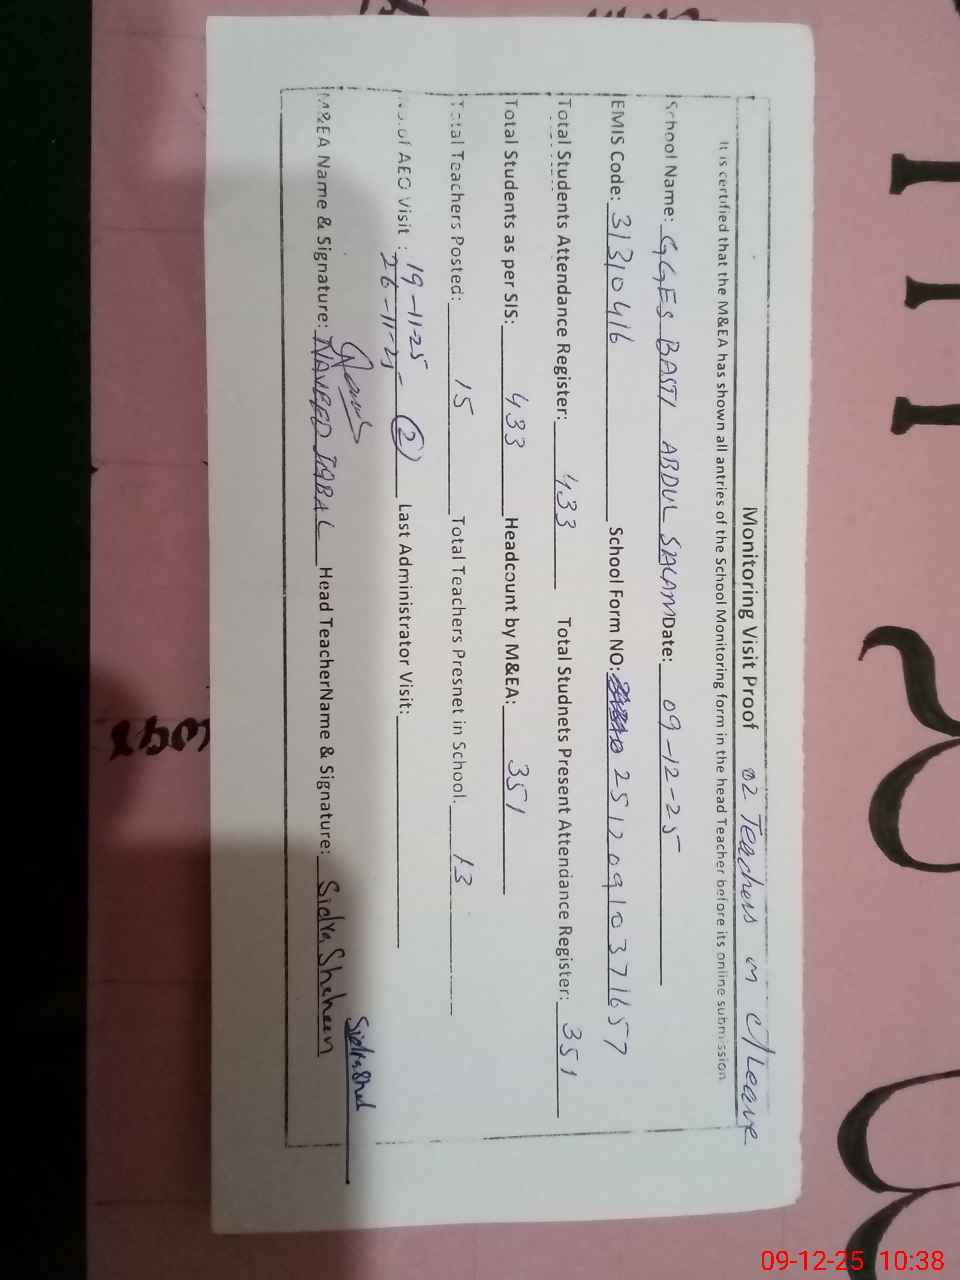 Monitoring Visit Proof 02 Teachers on C/Leave
It is certified that the M&EA has shown all antries of the School Monitoring form in the head Teacher before its online submission
School Name: GGES BASTI ABDUL SALAM Date: 09-12-25
EMIS Code: 31310416 School Form NO: 25120910371657
Total Students Attendance Register: 433 Total Studnets Present Attendance Register: 351
Total Students as per SIS: 433 Headcount by M&EA: 351
Total Teachers Posted: 15 Total Teachers Presnet in School. 13
No.of AEO Visit : 19-11-25 - (2) Last Administrator Visit:
26-11-25
M&EA Name & Signature: NAVEED IQBAL Head TeacherName & Signature: Sidra Shaheen
09-12-25 10:38